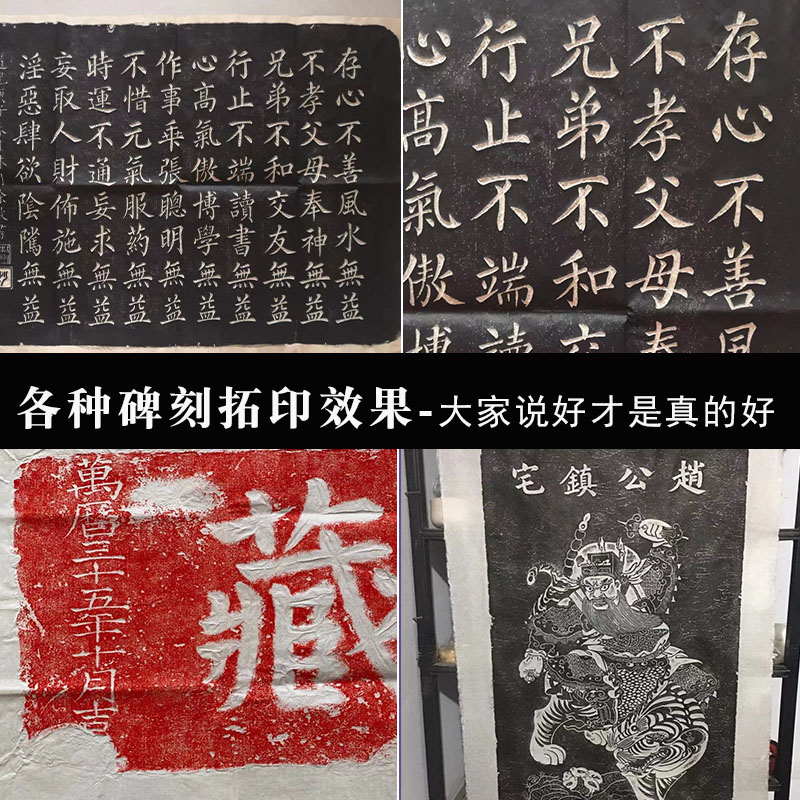 存心不善風水無益
不孝父母奉神無益
兄弟不和交友無益
行止不端讀書無益
心髙氣傲博學無益
作事乖張聰明無益
不惜元氣服药無益
時運不通妄求無益
妄取人財佈施無益
淫惡肆欲陰騭無益
存心不善風
不孝父母奉
兄弟不和交
行止不端讀
心髙氣傲博
各种碑刻拓印效果-大家说好才是真的好
藏
萬曆三十五年十月吉
趙公鎮宅